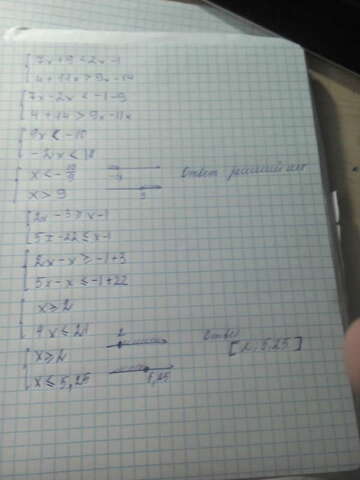 { 7x+9<2x-1
4+11x>9x-14
{ 7x-2x<-1-9
4+14>9x-11x
{ 9x<-10
-2x<18
{ x<-10/9
x>9
Ответ решений нет
{ 2x-3≥x-1
5x-22≤x-1
{ 2x-x≥-1+3
5x-x≤-1+22
{ x≥2
4x≤21
{ x≥2 2
x≤5,25 5,25
Ответ
[2; 5,25]